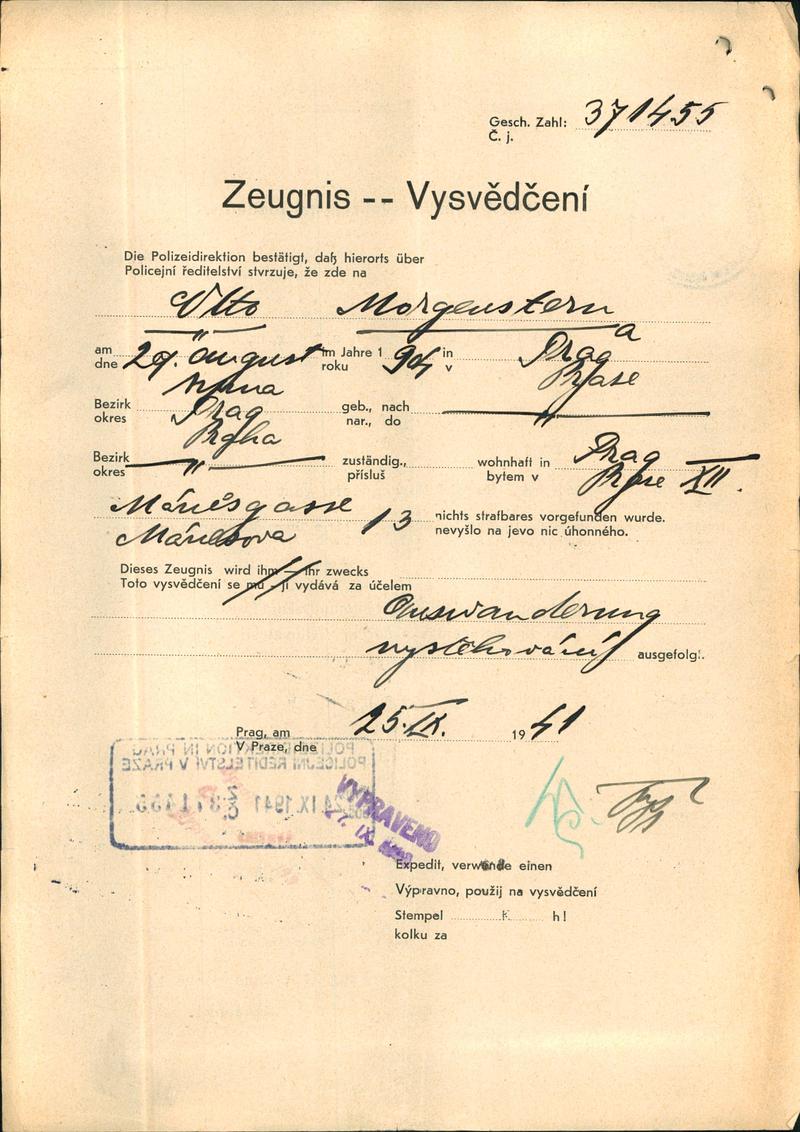 Gesch. Zahl: 371455
Č. j.
Zeugnis -- Vysvědčení
Die Polizeidirektion bestätigt, daß hierorts über
Policejní ředitelství stvrzuje, že zde na
Otto Morgenstern
a
am 29. august im Jahre 1 904 in Prag
dne srpna roku v Praze
Bezirk Prag geb., nach
okres Praha nar., do "
Bezirk zuständig., wohnhaft in Prag
okres " přísluš bytem v Praze XII.
Mánesgasse 13 nichts strafbares vorgefunden wurde.
Mánesova nevyšlo na jevo nic úhonného.
Dieses Zeugnis wird ihm - ihr zwecks
Toto vysvědčení se mu - jí vydává za účelem
Auswanderung
vystěhování ausgefolgt.
Prag, am 25. IX. 19 41
V Praze, dne
POLIZEIDIREKTION IN PRAG
POLICEJNÍ ŘEDITELSTVÍ V PRAZE
24 IX 1941
VYPRAVENO
Expedit, verwende einen
Výpravno, použij na vysvědčení
Stempel K h!
kolku za